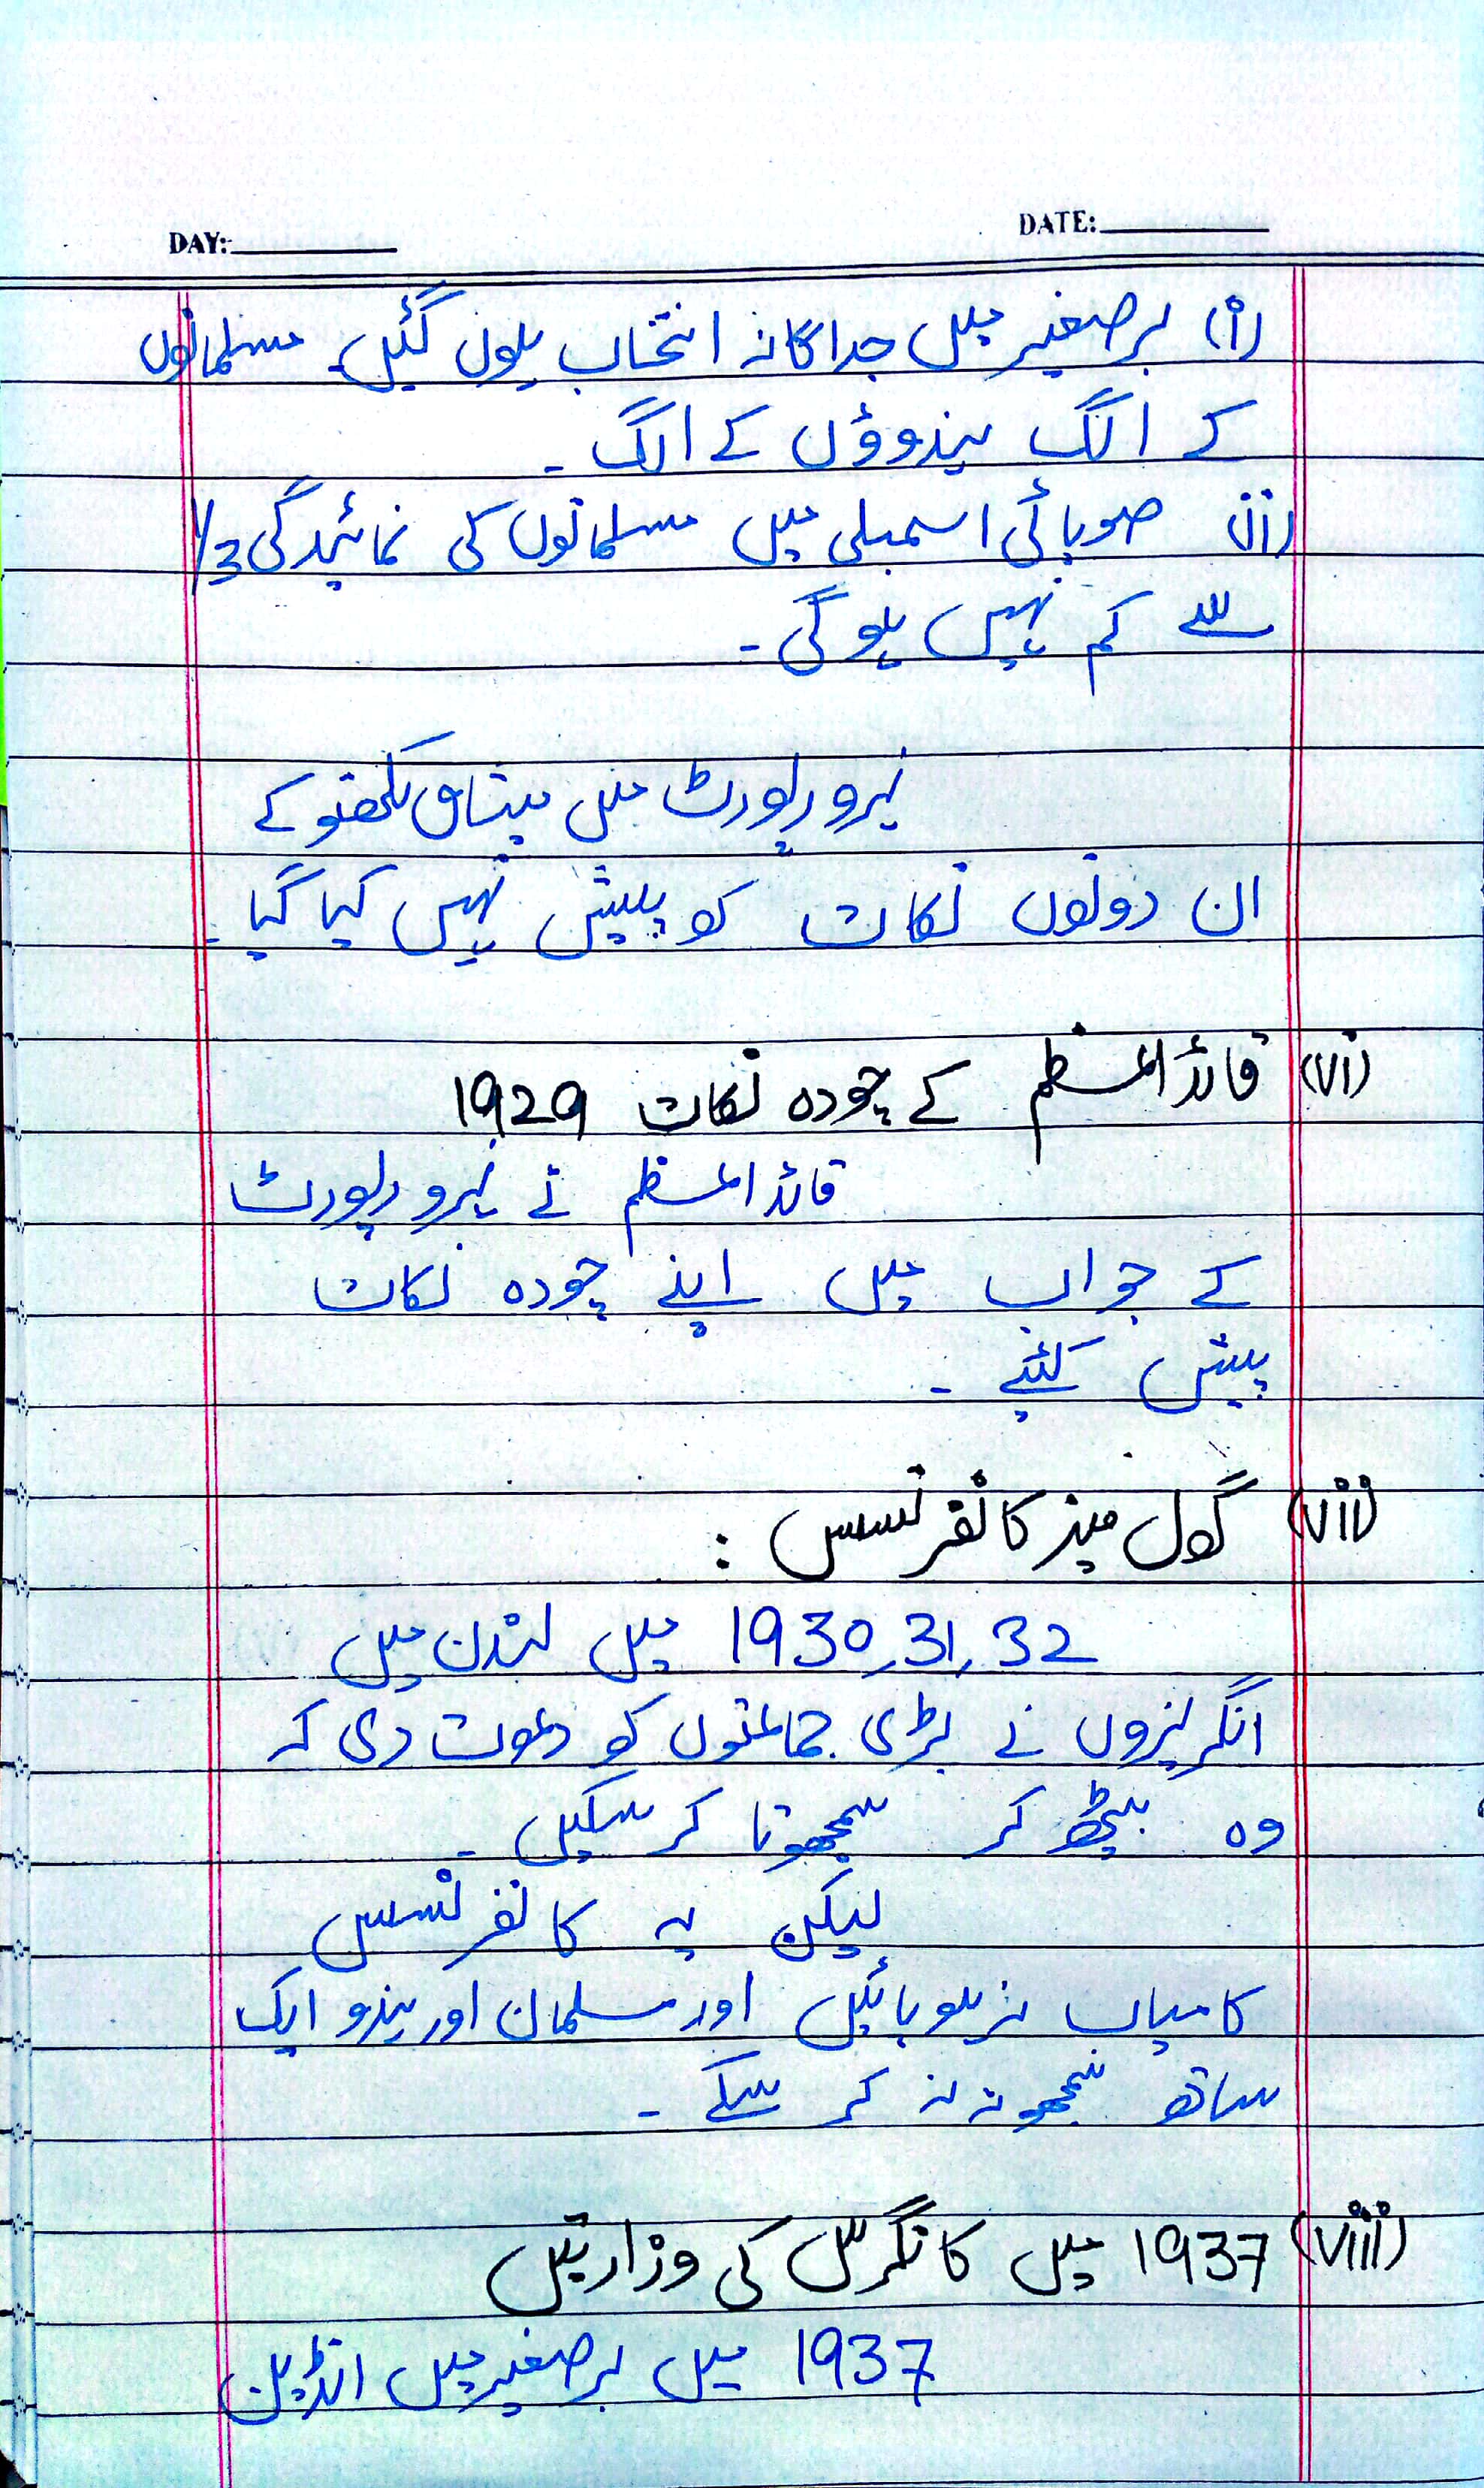 DAY:
DATE:
(i) برصغیر میں جداگانہ انتخاب ہوں گئیں۔ مسلمانوں
کے الگ ہندوؤں کے الگ۔
(ii) صوبائی اسمبلی میں مسلمانوں کی نمائندگی 1/3
سے کم نہیں ہوگی۔
نہرو رپورٹ میں میثاق لکھنو کے
ان دونوں نکات کو پیش نہیں کیا گیا۔
(vi) قائد اعظم کے چودہ نکات 1929
قائد اعظم نے نہرو رپورٹ
کے جواب میں اپنے چودہ نکات
پیش کئیے۔
(vii) گول میز کانفرنسس :
1930,31,32 میں لندن میں
انگریزوں نے بڑی جماعتوں کو دعوت دی کہ
وہ بیٹھ کر سمجھوتا کر سکیں۔
لیکن یہ کانفرنسس
کامیاب نہ ہو پائیں اور مسلمان اور ہندو ایک
ساتھ سمجھوتہ نہ کر سکے۔
(viii) 1937 میں کانگرس کی وزارتیں
1937 میں برصغیر میں انڈین